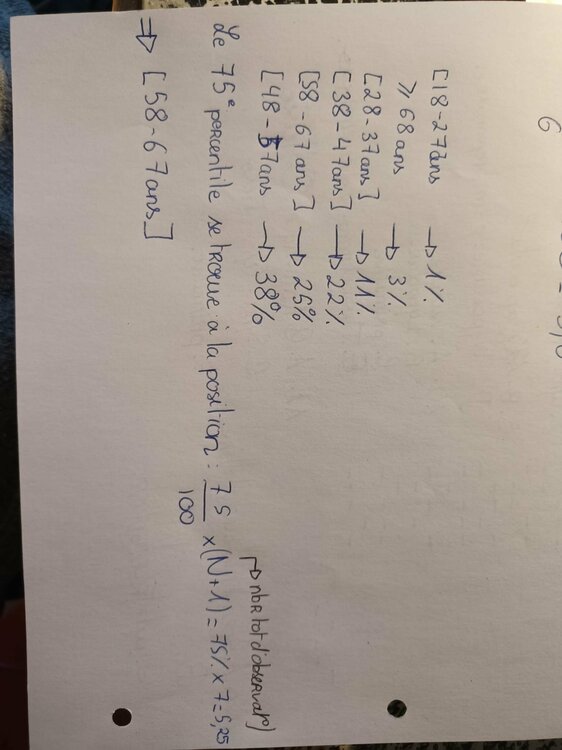 6
[18-27ans → 1%
≥ 68ans → 3%
[28-37ans] → 11%
[38-47ans] → 22%
[58-67ans] → 25%
[48-57ans → 38%
→ nbR tot d'observat°)
Le 75e percentile se trouve à la position : 75/100 x (N+1) = 75% x 7 = 5,25
⇒ [58-67ans]